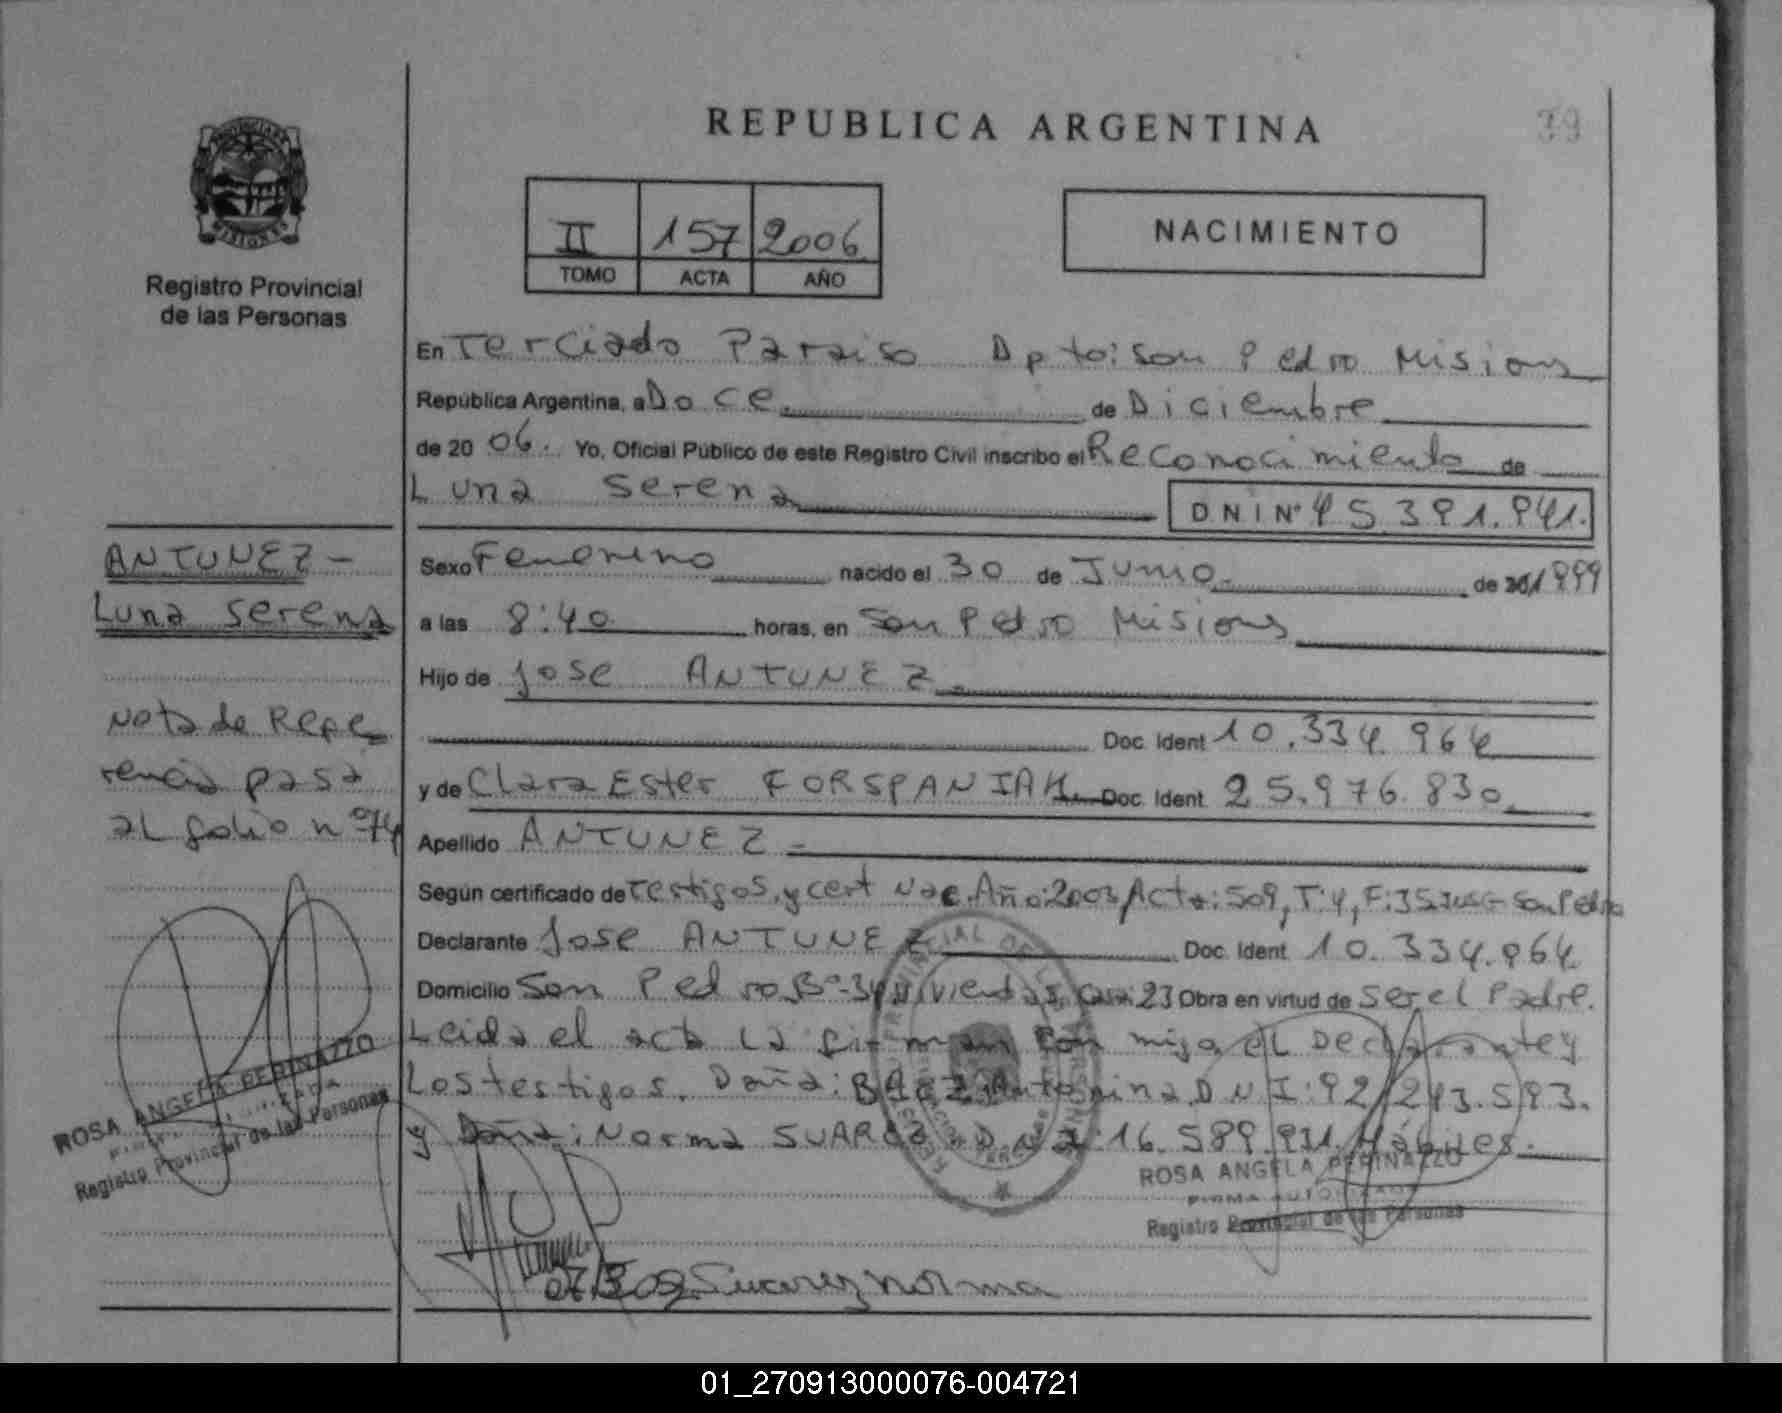 REPUBLICA ARGENTINA
39
PROVINCIA DE MISIONES
Registro Provincial
de las Personas
II 157 2006
TOMO ACTA AÑO
NACIMIENTO
En Terciado Paraiso Dpto: San Pedro Misiones
República Argentina, a Doce de Diciembre
de 2006. Yo, Oficial Público de este Registro Civil inscribo el Reconocimiento de
Luna Serena
DNI Nº 45.391.941.
ANTUNEZ -
Luna Serena
Nota de Refe
rencia pasa
al folio nº 74
Sexo Femenino nacido el 30 de Junio de 1999
a las 8:40 horas, en San Pedro Misiones
Hijo de Jose ANTUNEZ
Doc. Ident. 10.334.964
y de Clara Ester FORSPANIAK Doc. Ident. 25.976.830
Apellido ANTUNEZ -
Según certificado de Testigos, y cert Nac. Año: 2003, Acta: 509, T: 4, F: San Pedro
Declarante Jose ANTUNEZ Doc. Ident. 10.334.964
Domicilio San Pedro Bº-34 Viviendas, casa 23 Obra en virtud de ser el Padre.
Leida el acta la firman con migo el Declarante y
Los testigos. Doña: BAEZ Antonina D N I: 92.243.593.
y Doña: Norma SUAREZ D.N.I: 16.589.931. Hábiles.
ROSA ANGELA PERINAZZO
FIRMA AUTORIZADA
Registro Provincial de las Personas
ROSA ANGELA PERINAZZO
FIRMA AUTORIZADA
Registro Provincial de las Personas
Suarez Norma
01_270913000076-004721